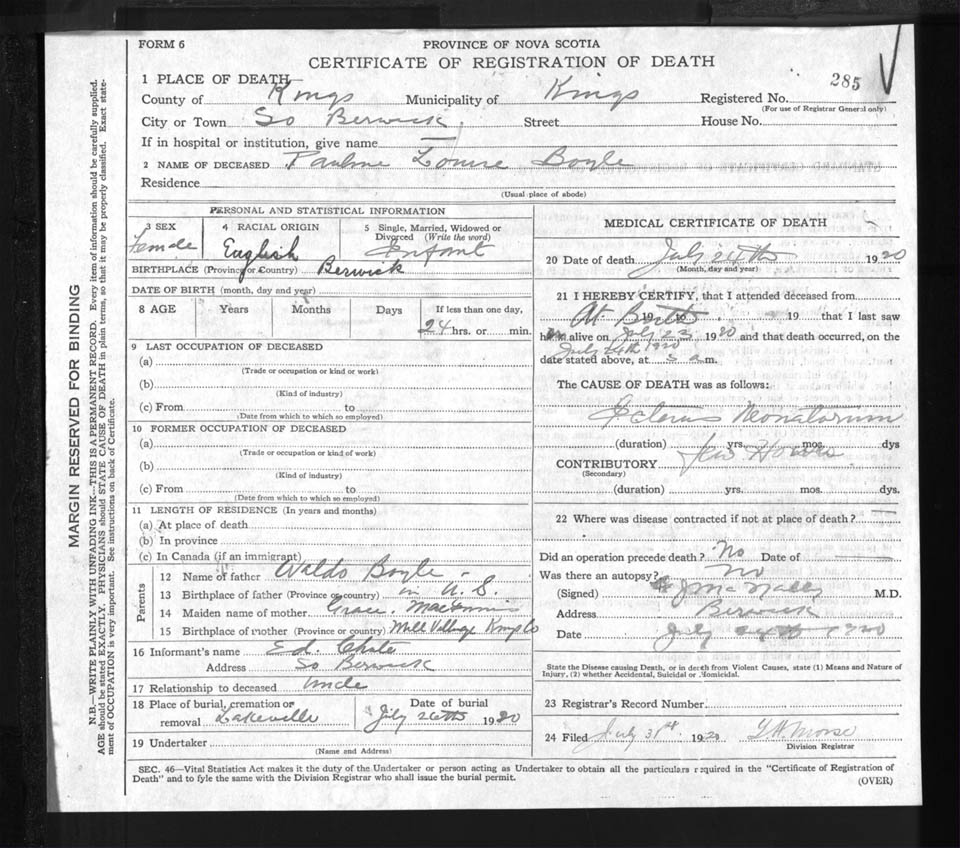 FORM 6
PROVINCE OF NOVA SCOTIA
CERTIFICATE OF REGISTRATION OF DEATH
285
1 PLACE OF DEATH
County of Kings Municipality of Kings Registered No.
(For use of Registrar General only)
City or Town So Berwick Street House No.
If in hospital or institution, give name —
2 NAME OF DECEASED Pauline Louise Boyle
Residence
(Usual place of abode)
PERSONAL AND STATISTICAL INFORMATION
3 SEX 4 RACIAL ORIGIN 5 Single, Married, Widowed or Divorced (Write the word)
Female English Infant
BIRTHPLACE (Province or Country) Berwick
DATE OF BIRTH (month, day and year)
8 AGE Years Months Days If less than one day,
24 hrs. or min.
9 LAST OCCUPATION OF DECEASED
(a)
(Trade or occupation or kind or work)
(b)
(Kind of industry)
(c) From to
(Date from which to which so employed)
10 FORMER OCCUPATION OF DECEASED
(a)
(Trade or occupation or kind of work)
(b)
(Kind of industry)
(c) From to
(Date from which to which so employed)
11 LENGTH OF RESIDENCE (In years and months)
(a) At place of death
(b) In province
(c) In Canada (if an immigrant)
Parents
12 Name of father Waldo Boyle
13 Birthplace of father (Province or country) in U. S.
14 Maiden name of mother Grace
15 Birthplace of mother (Province or country) Mill Village Kings Co
16 Informant's name Ed. Chute
Address So Berwick
17 Relationship to deceased Uncle
18 Place of burial, cremation or removal Lakeville
Date of burial July 26th 1920
19 Undertaker
(Name and Address)
MEDICAL CERTIFICATE OF DEATH
20 Date of death July 24th 1920
(Month, day and year)
21 I HEREBY CERTIFY, that I attended deceased from
At Birth 19 to 19 that I last saw
h alive on July 23 1920 and that death occurred, on the
July 24th 1920
date stated above, at 5 a m.
The CAUSE OF DEATH was as follows:
Icterus Neonatorum
(duration) yrs. mos. dys
few Hours
CONTRIBUTORY
(Secondary)
(duration) yrs. mos. dys.
22 Where was disease contracted if not at place of death? —
Did an operation precede death? No Date of —
Was there an autopsy? No
(Signed) McNally M.D.
Address Berwick
Date July 1920
State the Disease causing Death, or in death from Violent Causes, state (1) Means and Nature of
Injury, (2) whether Accidental, Suicidal or Homicidal.
23 Registrar's Record Number
24 Filed July 31st 1920 Morse
Division Registrar
SEC. 46—Vital Statistics Act makes it the duty of the Undertaker or person acting as Undertaker to obtain all the particulars required in the "Certificate of Registration of
Death" and to fyle the same with the Division Registrar who shall issue the burial permit.
(OVER)
MARGIN RESERVED FOR BINDING
N.B.—WRITE PLAINLY WITH UNFADING INK—THIS IS A PERMANENT RECORD. Every item of information should be carefully supplied.
AGE should be stated EXACTLY. PHYSICIANS should STATE CAUSE OF DEATH in plain terms, so that it may be properly classified. Exact state-
ment of OCCUPATION is very important. See instructions on back of Certificate.